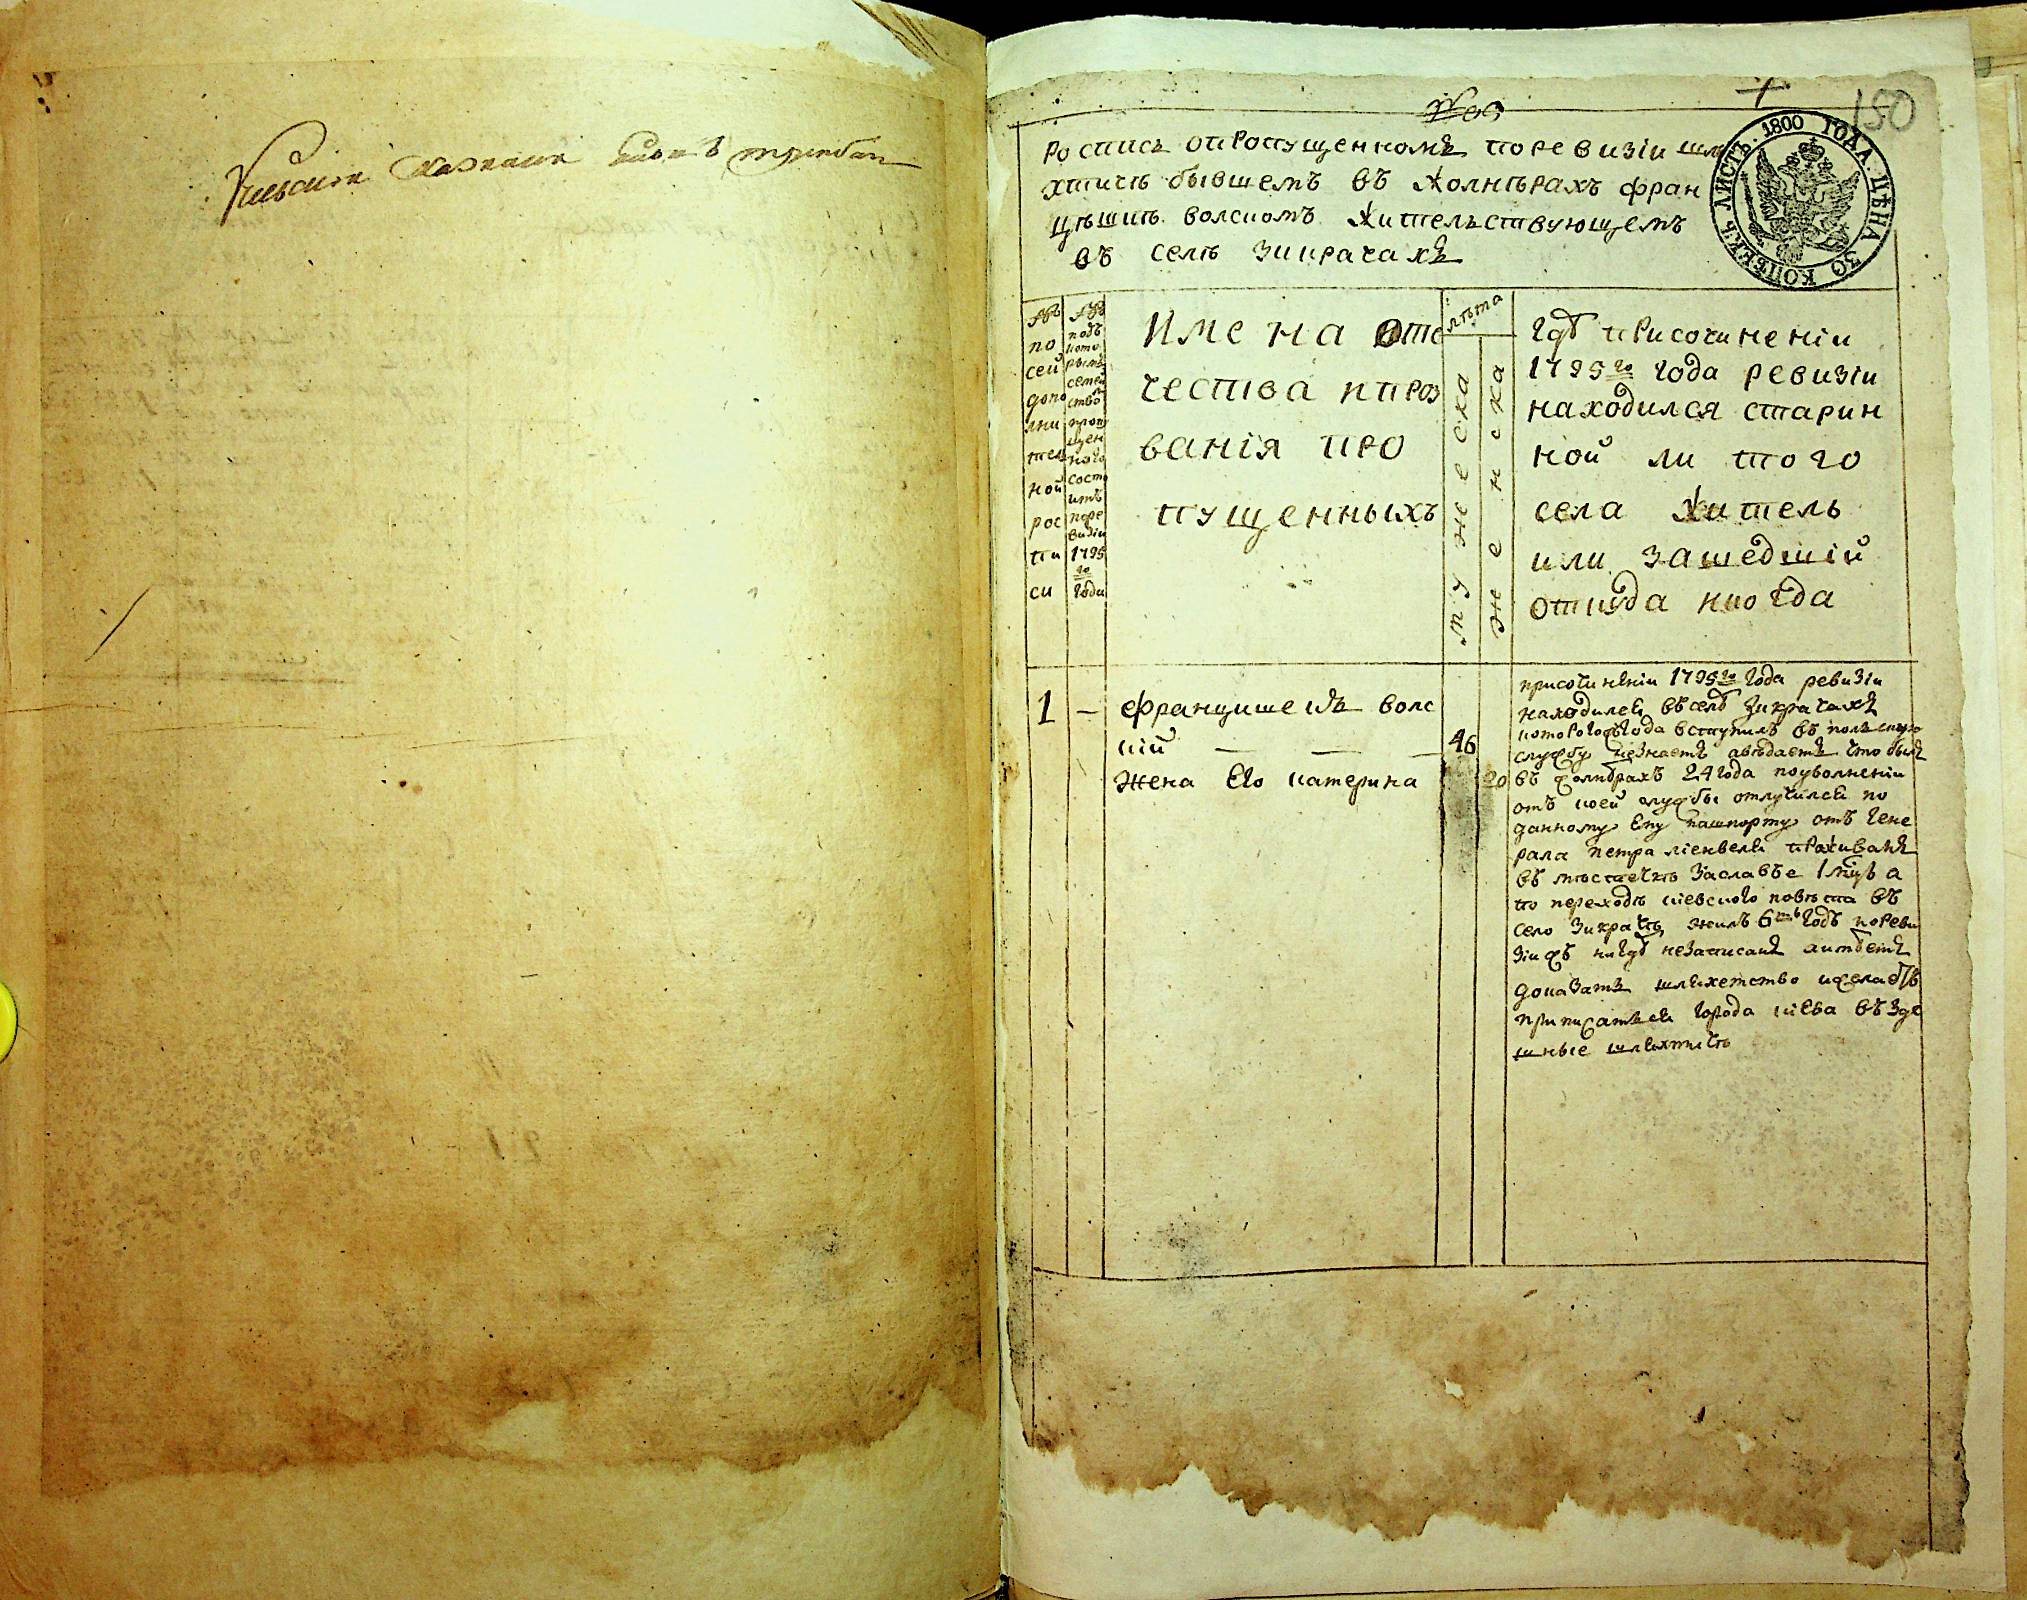 150
1800 ГОДА. ЦѢНА 30 КОПѢЕКЪ ЛИСТЪ.
Роспись опропущенномъ поревизіи шля
хтичѣ бывшемъ въ жолнѣрахъ Фран
цѣшкѣ волскомъ жительствующемъ
въ селѣ Зикрачахъ
№
по
сей
допо
лни
тел
ной
рос
пи
си
№
подъ
кото
рымъ
семей
ство
пропу
щен
наго
состо
итъ
поре
визіи
1795
го
года
Имена оте
чества ипроз
ванія про
пущенныхъ
лѣта
мужеска
женска
гдѣ присочиненіи
1795го года ревизіи
находился старин
ной ли того
села житель
или зашедшій
откуда икогда
1
Францишекъ волс
кій
46
жена Его катерина
20
присочинѣніи 1795го года ревизіи
находился въселѣ Зикрачахъ
котораго года вступилъ въ полскую
службу незнаетъ авѣдаетъ что былъ
въ жолнѣрахъ 24 года поуволненіи
отъ коей службы отлучился по
данному Ему пашпорту отъ Гене
рала Петра проживалъ
въ мѣстечкѣ Заславѣе 1 а
по переходѣ кіевского повѣта въ
село Зикрачѣ жилъ 6 годъ пореви
зіи жъ нигдѣ незаписанъ аимѣетъ
доказать шляхетство ижелаетъ
приписатъся города кіева въ зде
шные шляхтичѣ